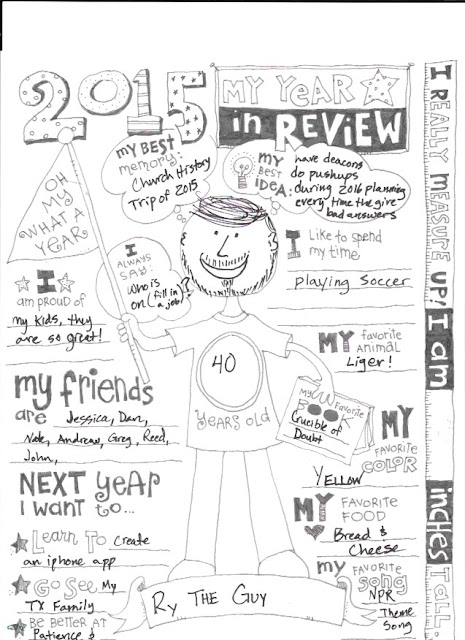 2015
MY YEAR
in REVIEW
my BEST
memory:
Church History
Trip of 2015
MY
BEST
IDEA:
have deacons
do pushups
during 2016 planning
every time the give
bad answers
OH
MY
WHAT A
YEAR
I
ALWAYS
SAY:
Who is
on (fill in a job)?
I Like to spend
my time,
Playing Soccer
I
am proud of
my kids, they
are so great!
MY favorite
animal
Liger!
40
YEARS OLD
my friends
are Jessica, Dan,
Nate, Andrew, Greg, Reed,
John,
My Favorite
BOOK
Crucible of
Doubt
MY
FAVORITE
COLOR
YELLOW
NEXT YEAR
I want to...
Learn To create
an iphone app
GO SEE My
TX Family
BE BETTER AT
Patience &
MY FAVORITE
FOOD
Bread &
Cheese
my FAVORITE
Song
NPR
Theme
Song
Ry THE GUY
I REALLY MEASURE UP! I am
inches TALL.